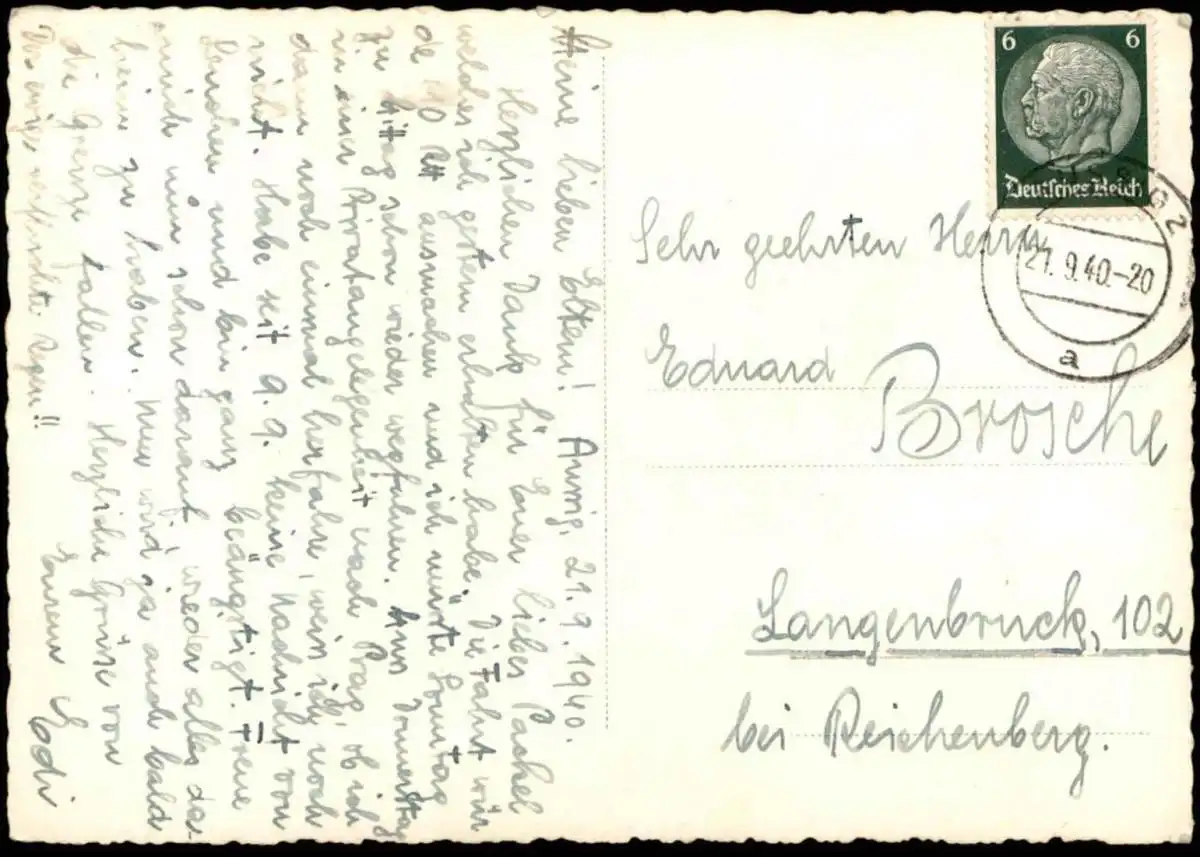 Meine lieben Eltern! Aussig, 21.9.1940.
Herzlichen Dank für Euer liebes Packel
welches ich gestern erhalten habe. Die Fahrt wür
de 40 RM ausmachen und ich müsste Sonntag
zu Mittag schon wieder wegfahren. Muss Donnerstag
in einer Privatangelegenheit nach Prag, ob ich
dann noch einmal herfahre, weiss ich noch
nicht. Habe seit 9.9. keine Nachricht von
Lenchen und bin ganz beängstigt. Freue
mich nun schon darauf, wieder alles da-
heim zu haben. Nun wird ja auch bald
die Grenze fallen. Herzliche Grüsse von
Eurem Edi
Das ewig verfluchte Regen!!
6 6
Deutsches Reich
21.9.40.-20
a
Sehr geehrten Herrn
Eduard
Brosche
Langenbruck, 102
bei Reichenberg.